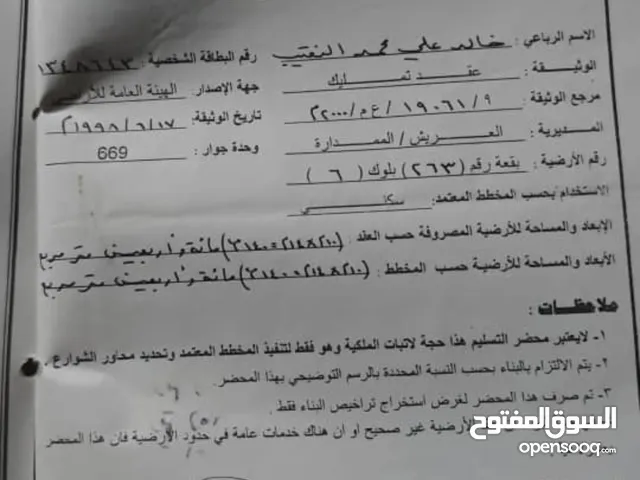 الاسم الرباعي : خالد علي محمد النقيب رقم البطاقة الشخصية : ١٣٤٨٦٤٣
الوثيقة : عقد تمليك جهة الإصدار : الهيئة العامة للأراضي
مرجع الوثيقة : ١٩٠٦١/٩ / ع م / ٢٠٠٠م تاريخ الوثيقة : ١٩٩٨/٦/١٧م
المديرية : العريش / المصدارة وحدة جوار : 669
رقم الأرضية : بقعة رقم (٢٦٣) بلوك ( ٦ )
الاستخدام بحسب المخطط المعتمد : سكني
الإبعاد والمساحة للأرضية المصروفة حسب العقد : مائة وأربعين متر مربع
الأبعاد والمساحة للأرضية حسب المخطط : مائة وأربعين متر مربع
ملاحظات :
١- لايعتبر محضر التسليم هذا حجة لاثبات الملكية وهو فقط لتنفيذ المخطط المعتمد وتحديد محاور الشوارع .
٢- يتم الالتزام بالبناء بحسب النسبة المحددة بالرسم التوضيحي بهذا المحضر.
٣- تم صرف هذا المحضر لغرض استخراج تراخيص البناء فقط .
الأرضية غير صحيح او ان هناك خدمات عامة في حدود الأرضية فان هذا المحضر
السوق المفتوح
opensooq.com